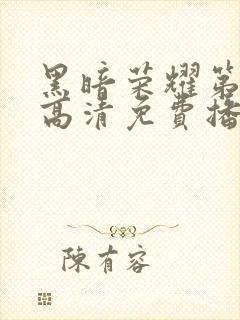 黑暗荣耀第
高清免费播
陳有容